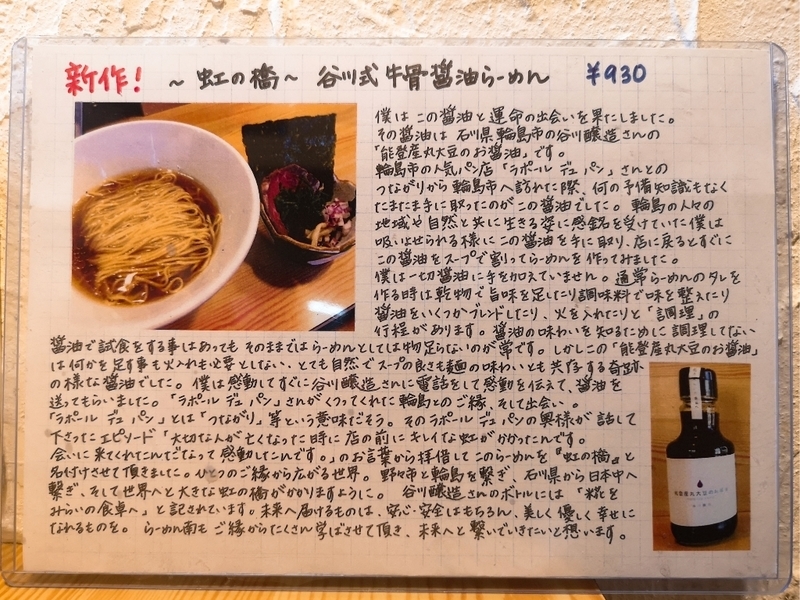 新作！ ～虹の橋～ 谷川式牛骨醤油らーめん ￥930
僕はこの醤油と運命の出会いを果たしました。
その醤油は石川県輪島市の谷川醸造さんの
「能登産丸大豆のお醤油」です。
輪島市の人気パン店「ラポール デュ パン」さんとの
つながりから輪島市へ訪れた際、何の予備知識もなく
たまたま手に取ったのがこの醤油でした。輪島の人々の
地域や自然と共に生きる姿に感銘を受けていた僕は
吸いよせられる様にこの醤油を手に取り、店に戻るとすぐに
この醤油をスープで割ってらーめんを作ってみました。
僕は一切醤油に手を加えていません。通常らーめんのタレを
作る時は乾物で旨味を足したり調味料で味を整えたり
醤油をいくつかブレンドしたり、火を入れたりと「調理」の
行程があります。醤油の味わいを知るために調理してない
醤油で試食をする事はあってもそのままではらーめんとしては物足らないのが常です。しかしこの「能登産丸大豆のお醤油」
は何かを足す事も火入れも必要としない、とても自然でスープの良さも麺の味わいとも共存する奇跡
の様な醤油でした。僕は感動してすぐに谷川醸造さんに電話をして感動を伝えて、醤油を
送ってもらいました。「ラポール デュ パン」さんがくれた輪島とのご縁、そして出会い。
「ラポール デュ パン」とは「つながり」等という意味だそう。そのラポール デュ パンの奥様が話して
下さったエピソード「大切な人が亡くなった時に店の前にキレイな虹がかかったんです。
会いに来てくれたんだなって感動したんです。」のお言葉から拝借してこのらーめんを『虹の橋』と
名付けさせて頂きました。ひとつのご縁から広がる世界。野々市と輪島を繋ぎ、石川県から日本中へ
繋ぎ、そして世界へと大きな虹の橋がかかりますように。 谷川醸造さんのボトルには「糀を
みらいの食卓へ」と記されています。未来へ届けるものは、安心・安全はもちろん、美しく優しく幸せに
なれるものを。 らーめん南もご縁からたくさん学ばさせて頂き、未来へと繋いでいきたいと想います。
能登産丸大豆のお醤油